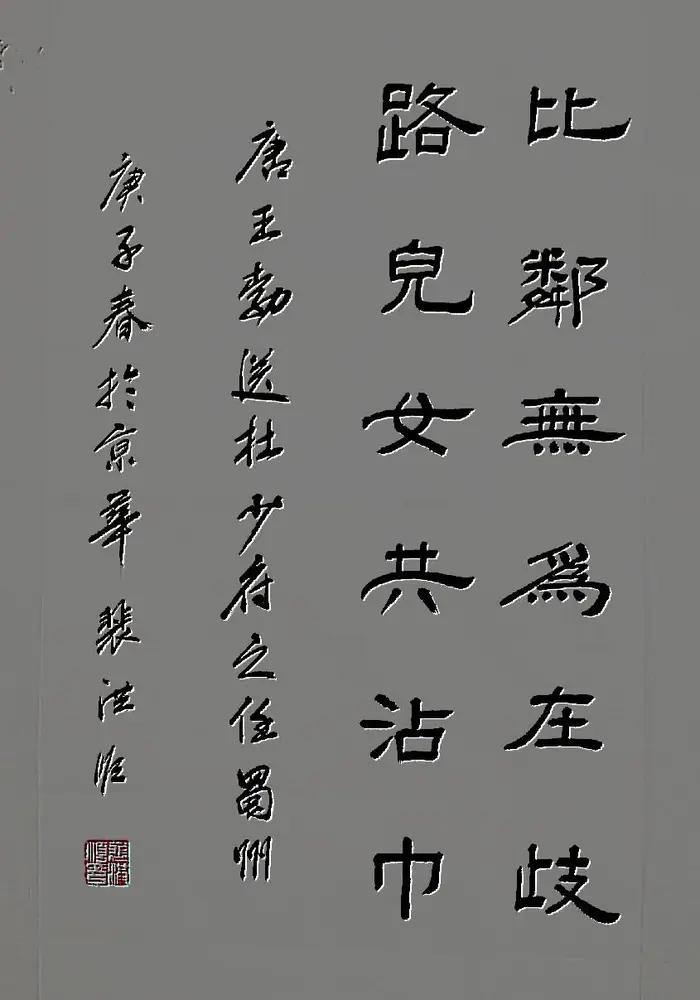 比鄰無為在歧
路兒女共沾巾
唐王勃送杜少府之任蜀州
庚子春於京華 裴洪